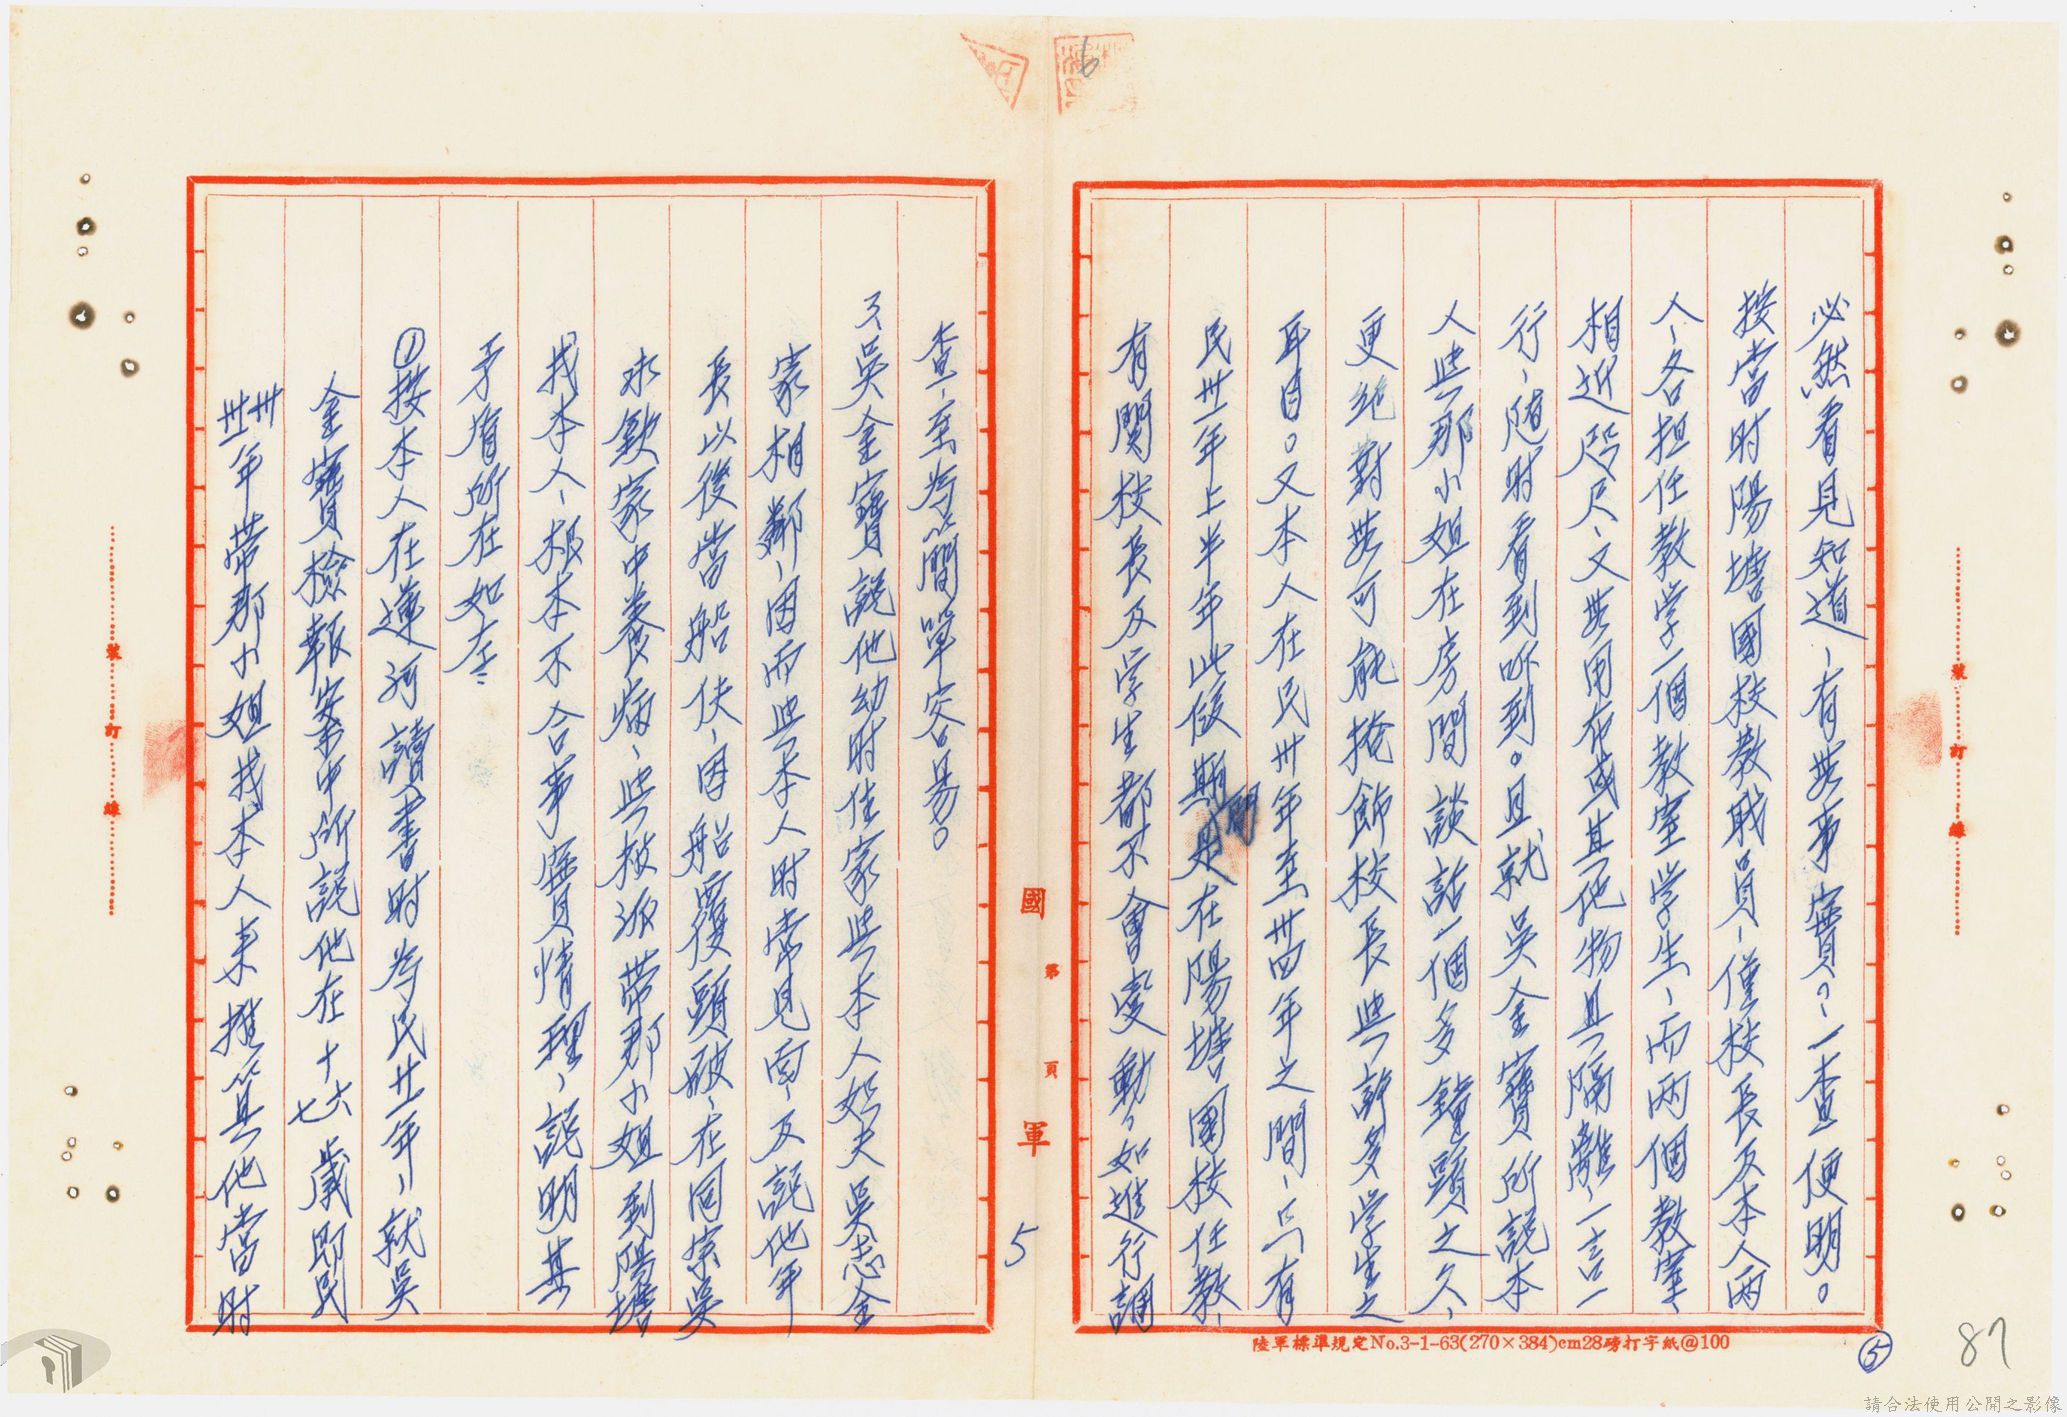 必然看見知道，有無事實？一查便明。
按當时陽塘國校教職員，僅校長及本人兩
人，各担任教学一個教室学生，而兩個教室，
相近咫尺，又無用布或其他物具隔離，一言一
行，随时看到听到。且就吳金寶所説本
人與那小姐在房間談話一個多鐘頭之久，
更絕對無可能掩飾校長與許多学生之
耳目。又本人在民卅年至卅四年之間，只有
民卅一年上半年此段期間是在陽塘國校任教，
有関校長及学生都不會变動，如進行調
查，至為簡單容易。
3、吳金寶説他幼时住家與本人姊夫吳志金
家相鄰，因而與本人时常見面，及説他年
長以後當船伕，因船覆頭破，在同宗吳
水欽家中養病，與被派带那小姐到陽塘
找本人，根本不合事實情理，説明其
矛盾所在如左：
①按本人在蓮河讀書时為民廿一年，就吳
金寶檢報案中所説他在十六七歲即民
卅卅一年带那小姐找本人来推算他當时
國軍
第 頁
5
裝訂線
裝訂線
陸軍標準規定No.3-1-63(270×384)cm28磅打字紙@100
⑤
87
6
請合法使用公開之影像